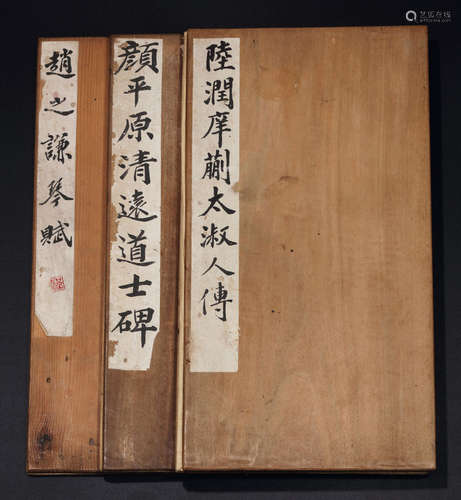 陸潤庠蒯太淑人傳
顏平原清遠道士碑
趙之謙琴賦